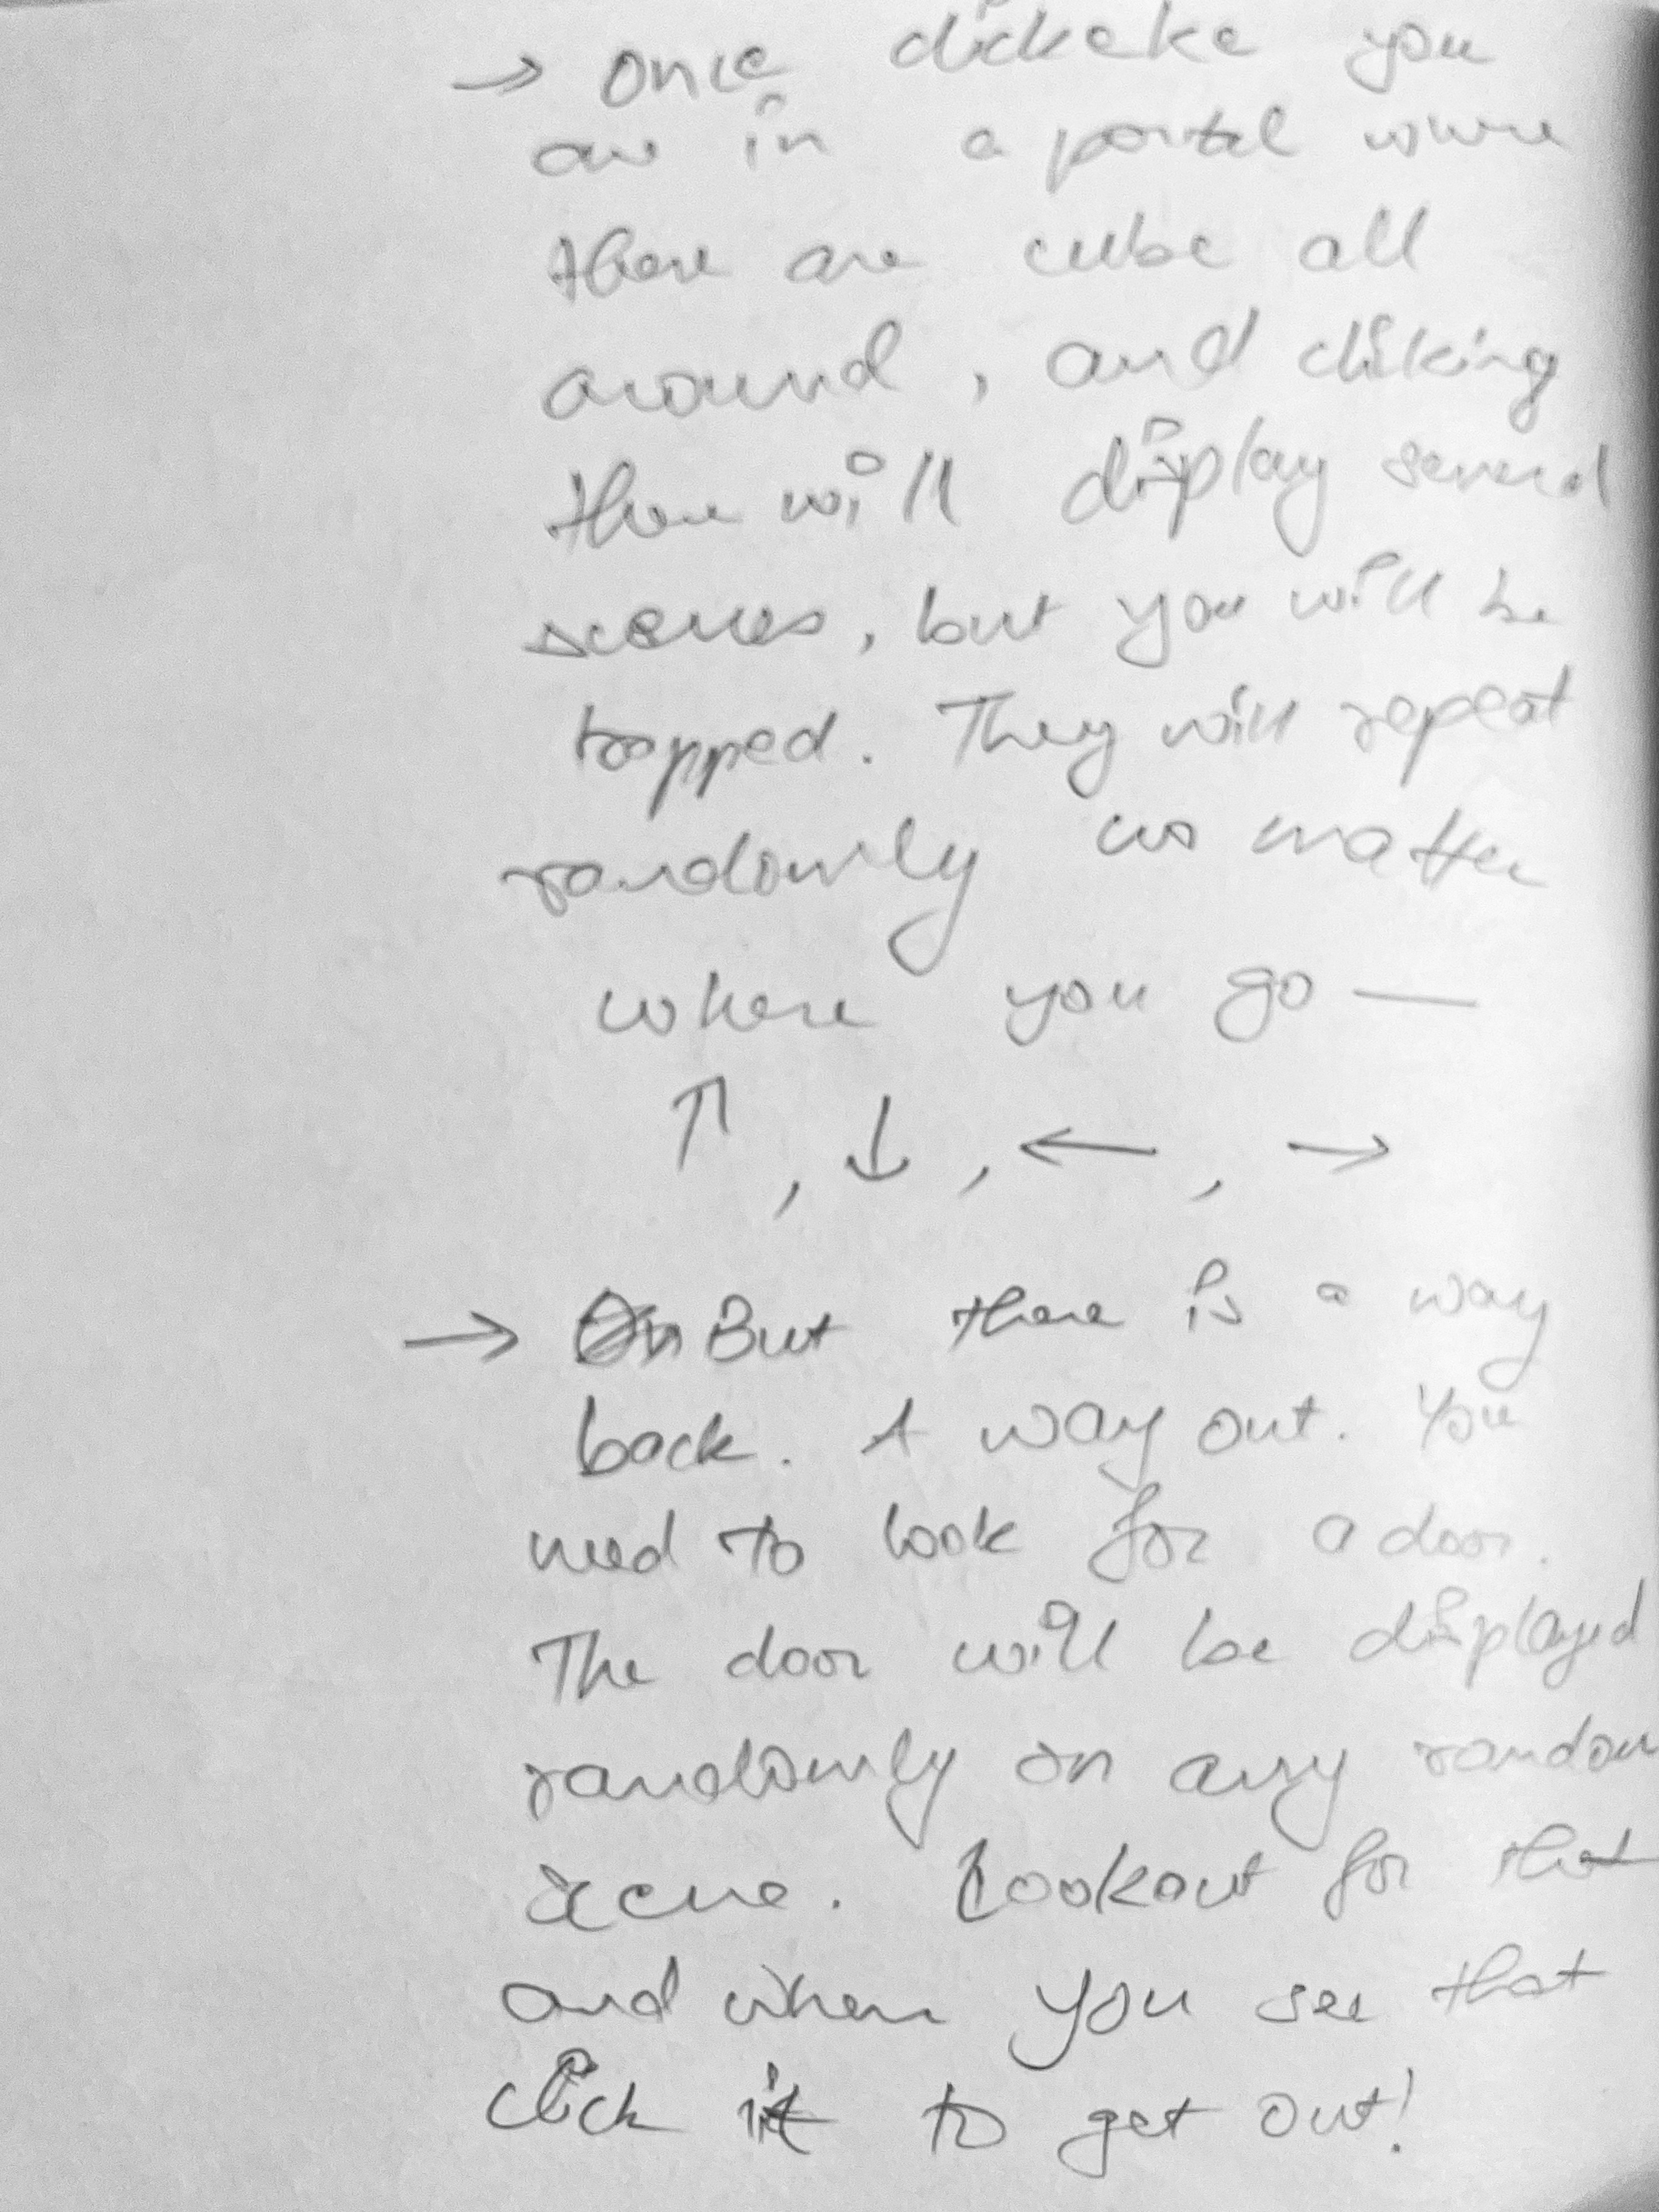 → Once clickeke you
are in a portal where
there are cube all
around, and cliking
there will display several
scenes, but you will be
trapped. They will repeat
randomly no matter
where you go —
↑, ↓, ←, →
→ But there is a way
back. A way out. You
need to look for a door.
The door will be displayed
randomly on any random
scene. Lookout for that
and when you see that
click it to get out!